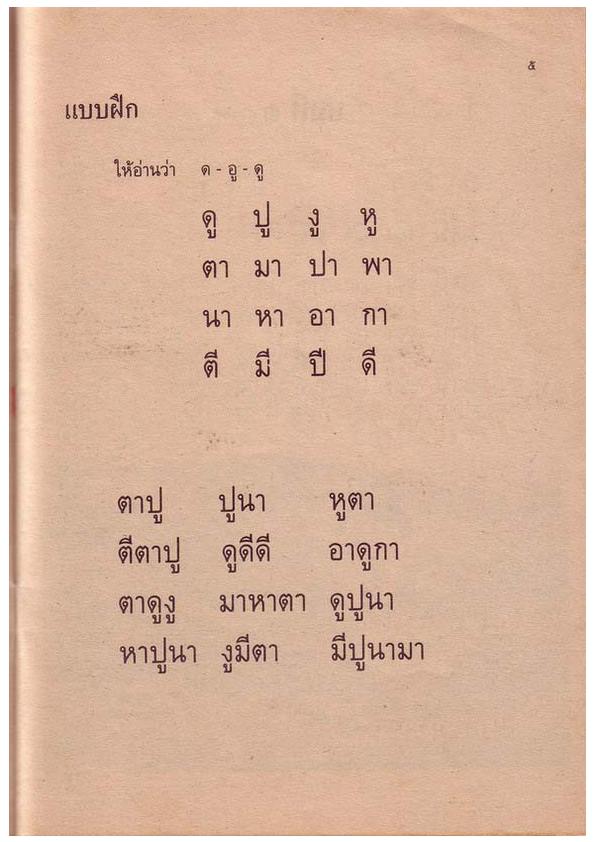 ๕
แบบฝึก
ให้อ่านว่า ด - อู - ดู
ดู ปู งู หู
ตา มา ปา พา
นา หา อา กา
ตี มี ปี ดี
ตาปู ปูนา หูตา
ตีตาปู ดูดีดี อาดูกา
ตาดูงู มาหาตา ดูปูนา
หาปูนา งูมีตา มีปูนามา